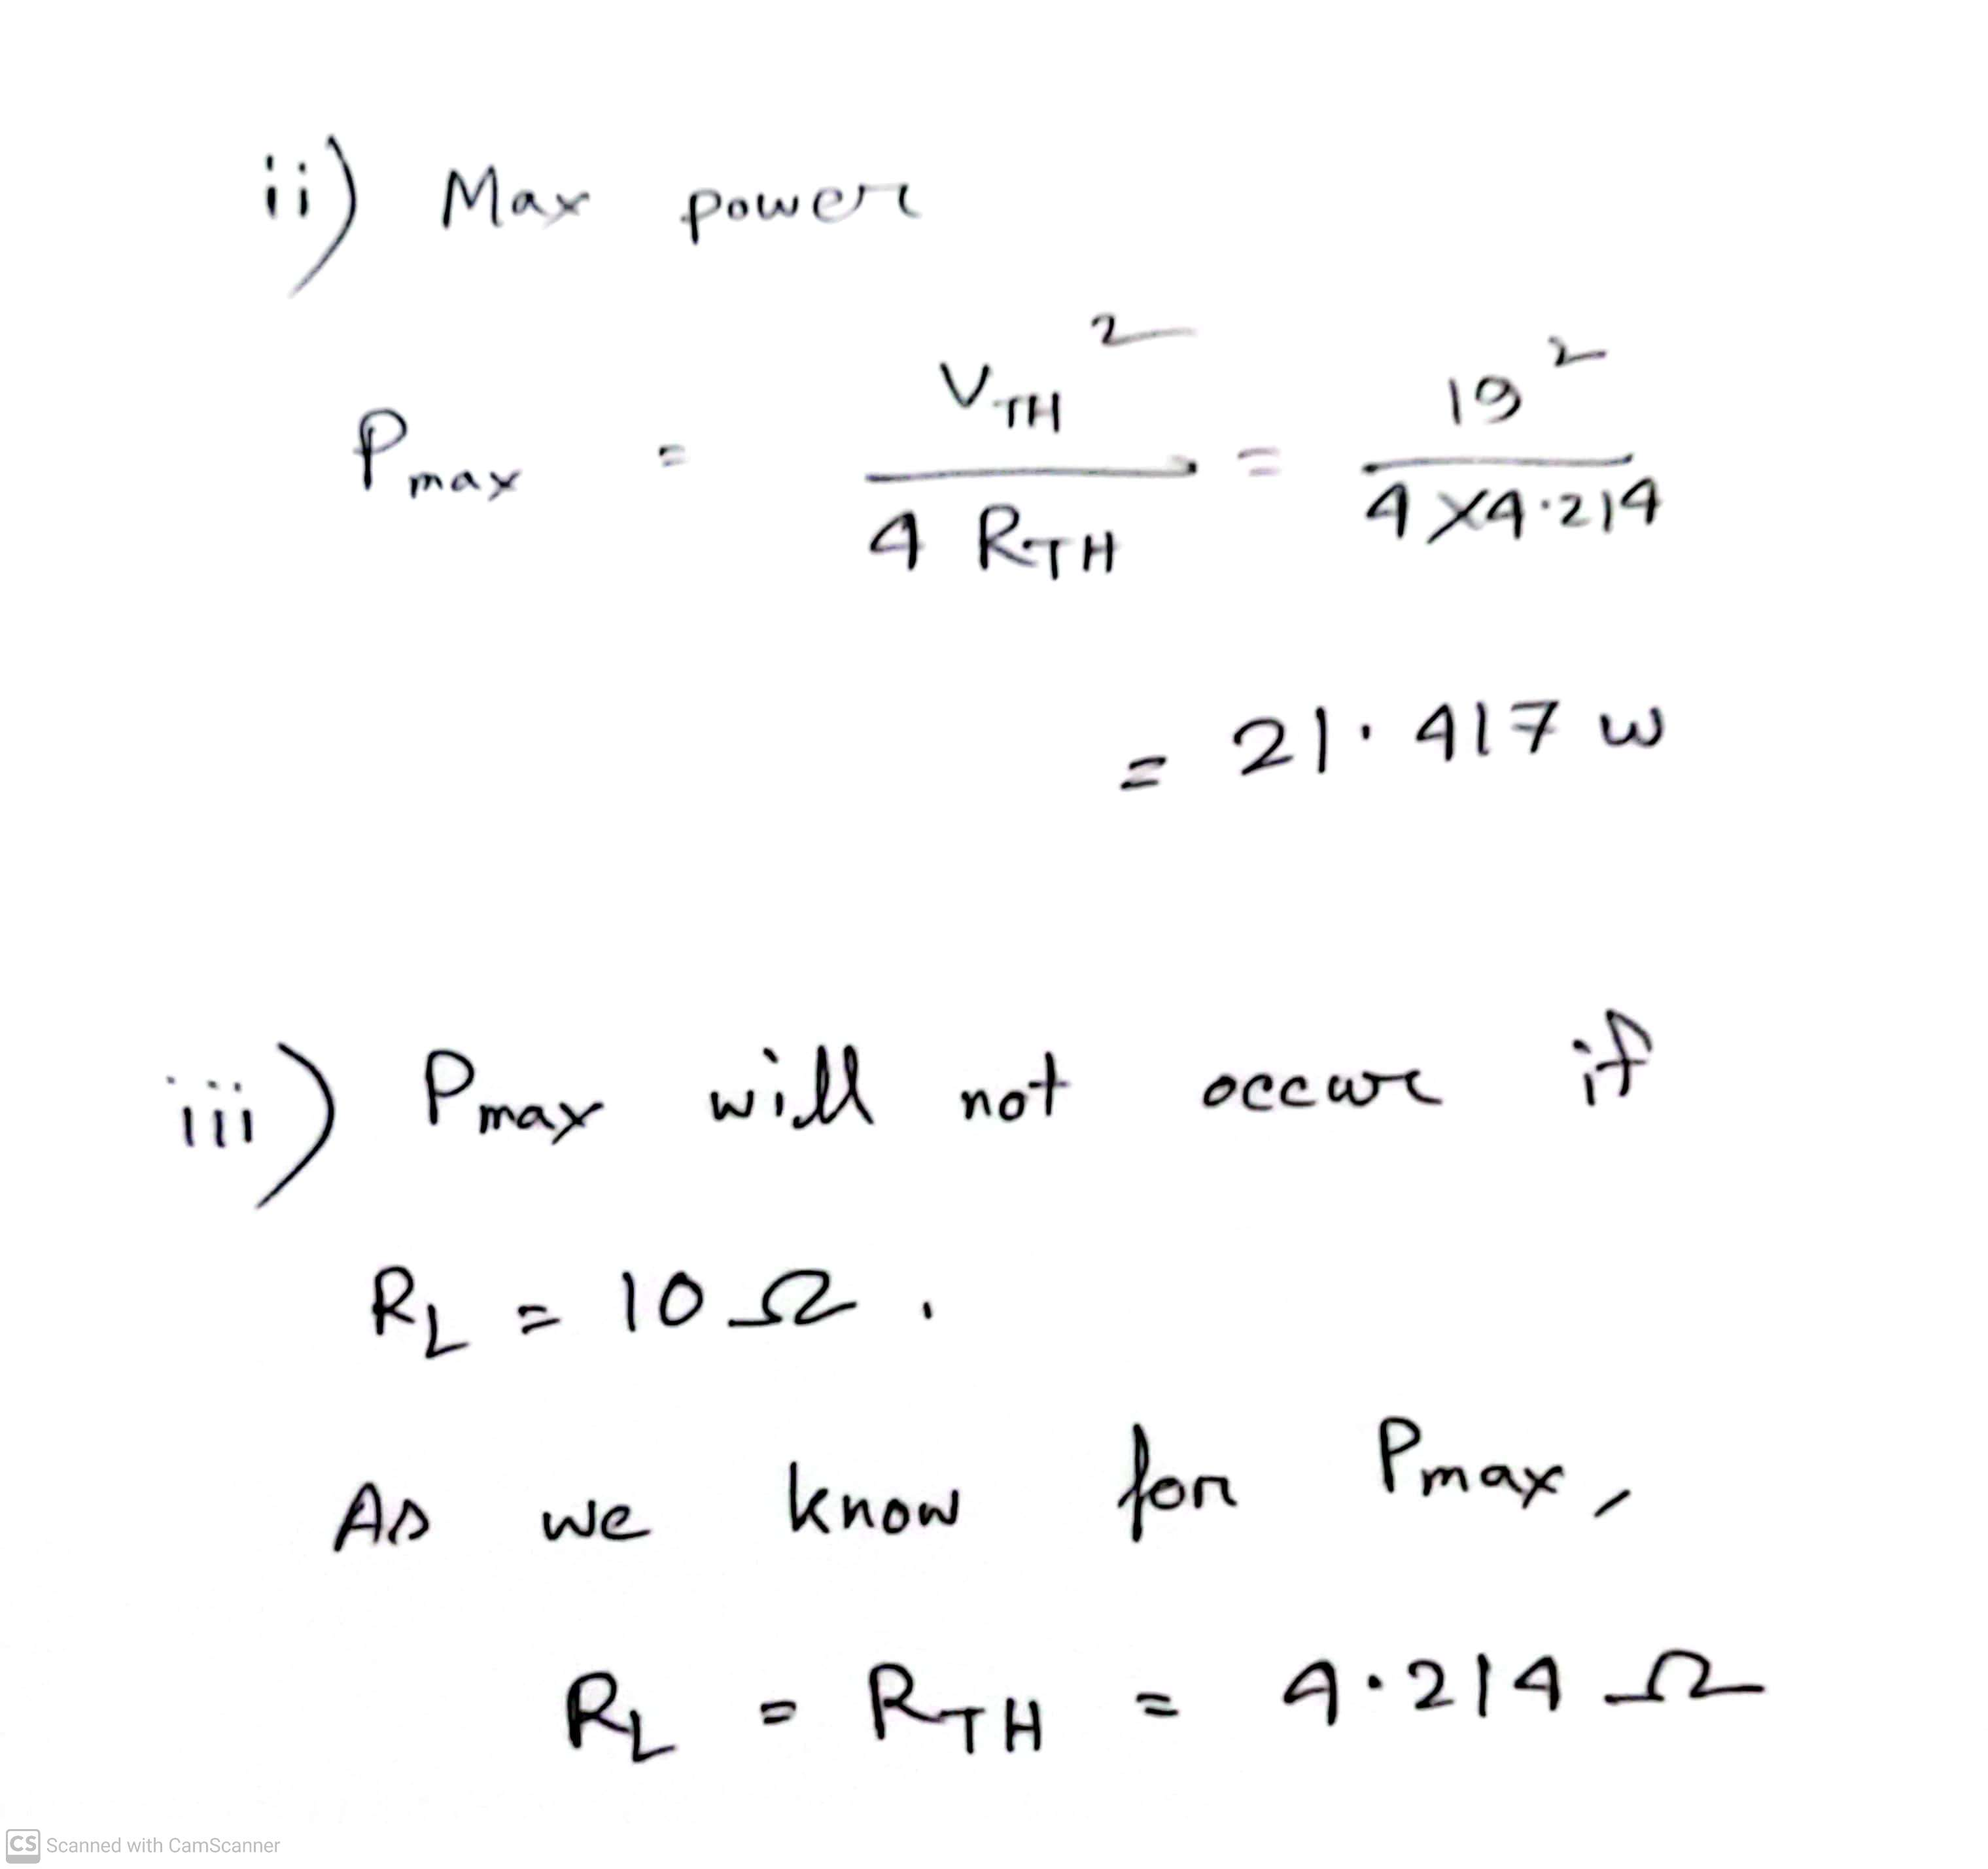 ii) Max power
P max = V TH ² / 4 R TH = 19² / 4 × 4.214
= 21.417 w
iii) P max will not occur if
R L = 10 Ω .
As we know for P max ,
R L = R TH = 4.214 Ω
CS Scanned with CamScanner